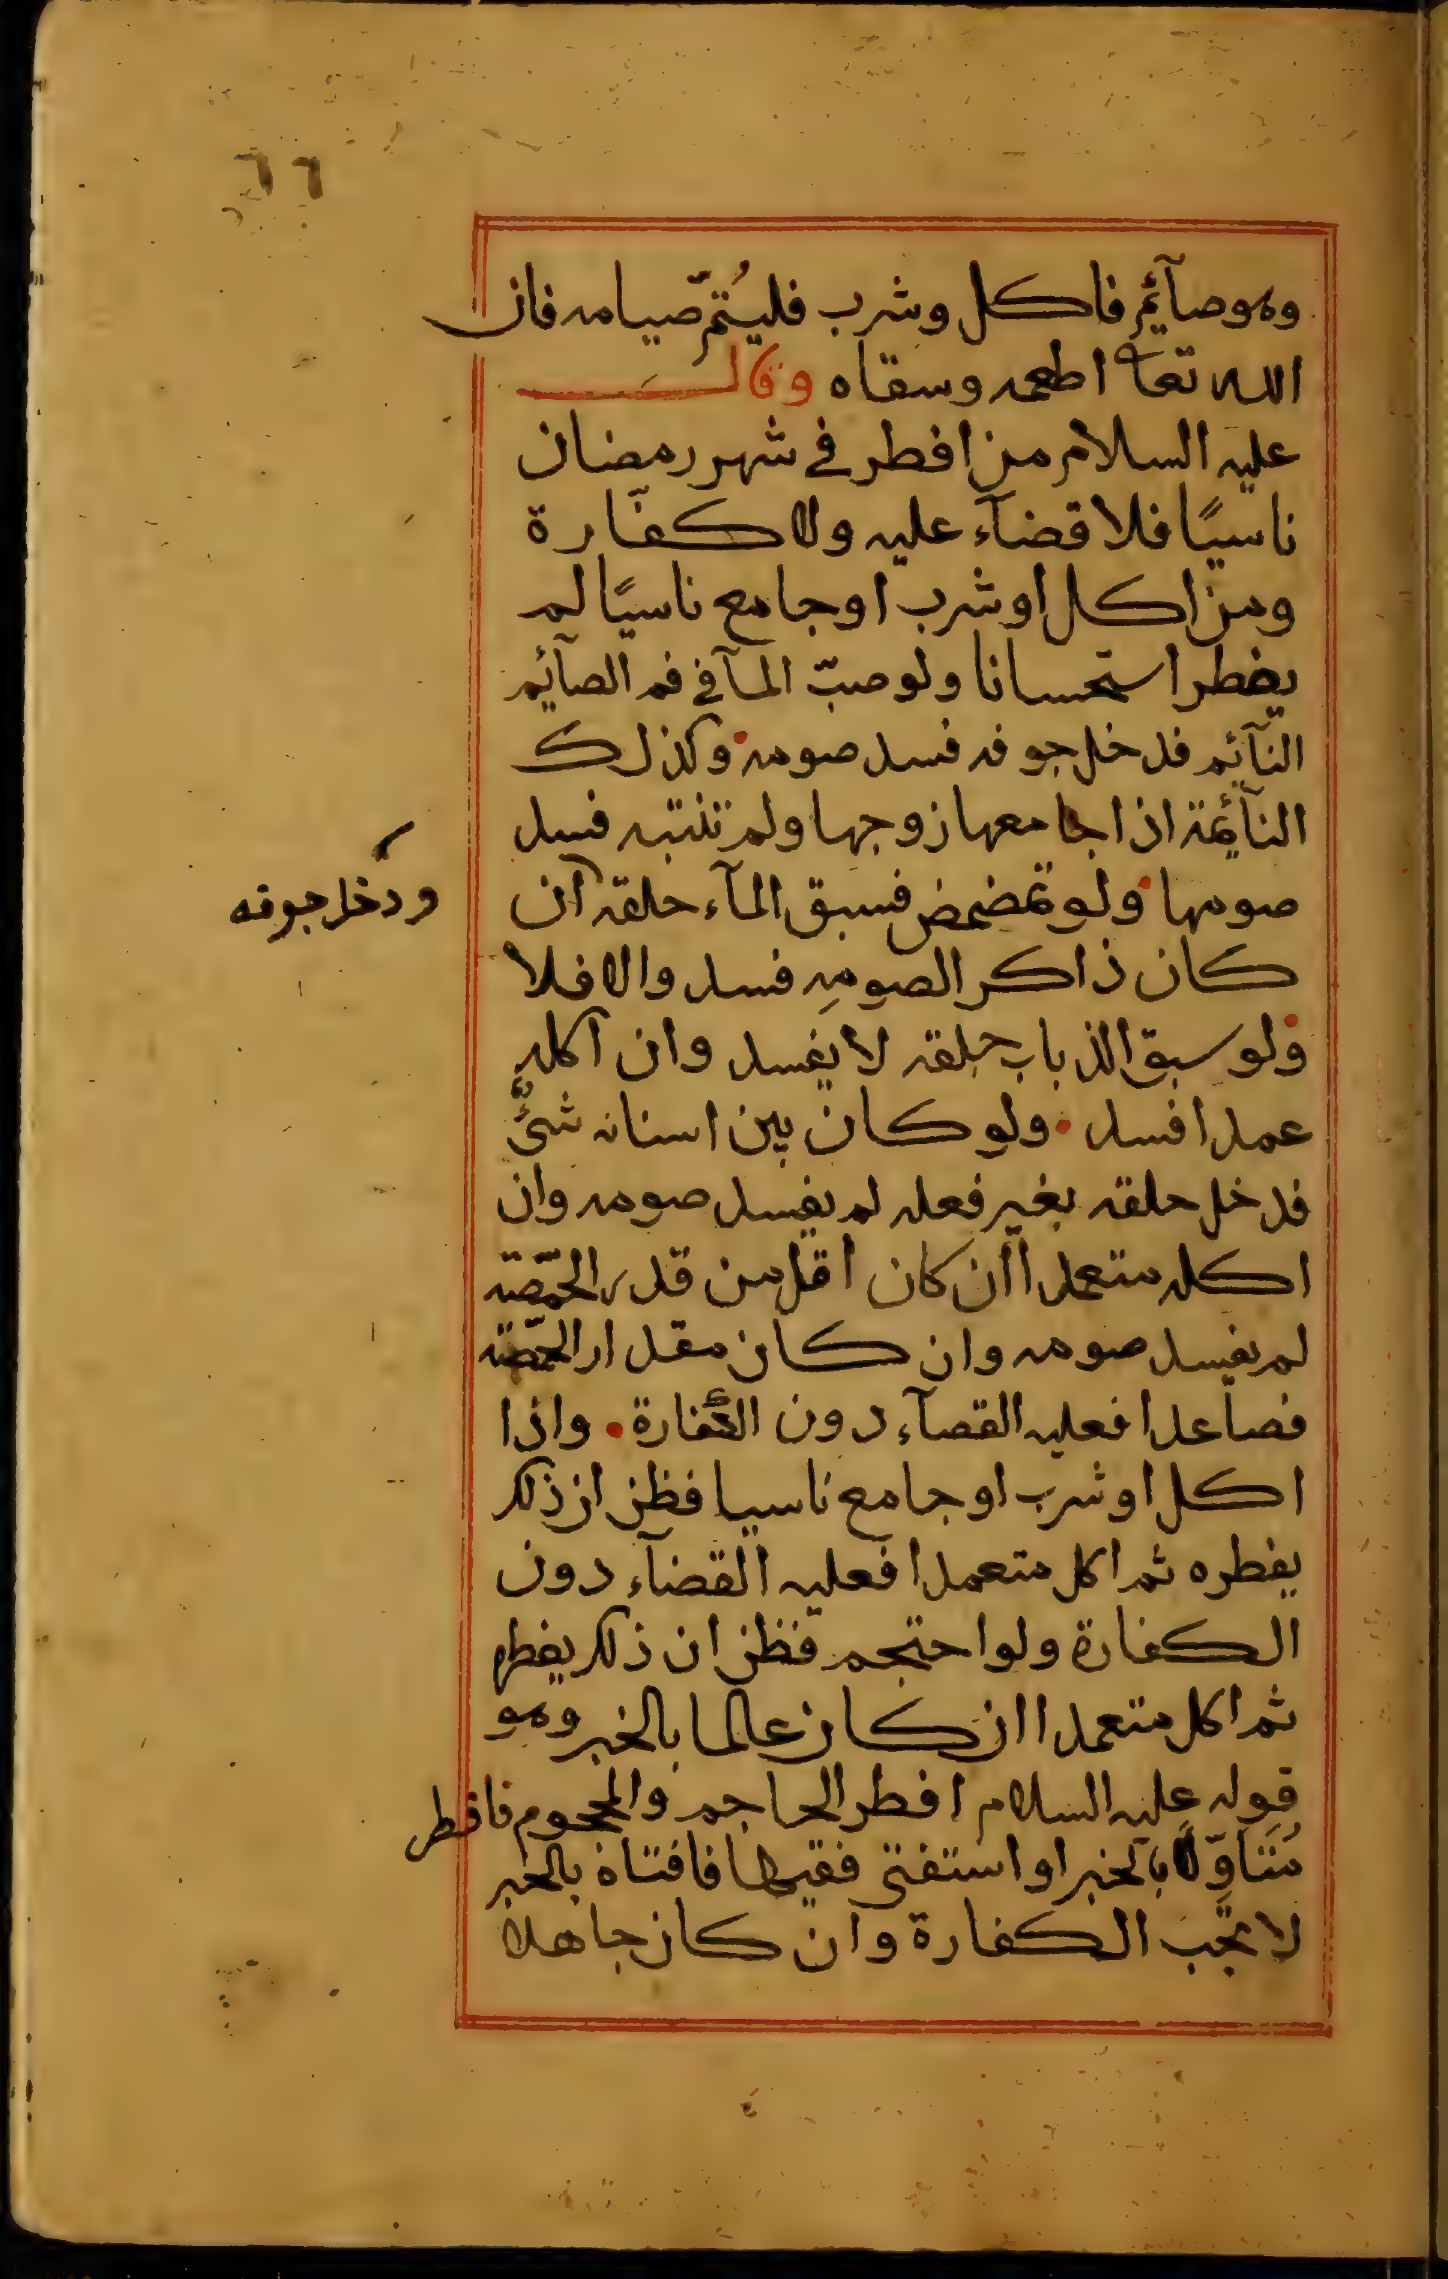 ٦٦
وهو صآئم فاكل وشرب فليُتمّ صيامه فان
الله تعا اطعمه وسقاه وقال
عليه السلام من افطر في شهر رمضان
ناسيًا فلا قضآء عليه ولا كفّارة
ومن اكل او شرب او جامع ناسيًا لم
يفطر استحسانا ولو صبّ المآ في فم الصآئم
النآئم فدخل جوفه فسد صومه وكذلك
النآئمة اذا جامعها زوجها ولم تنتبه فسد
صومها ولو تمضمض فسبق المآء حلقه ان
ودخل جوفه
كان ذاكر الصومه فسد والا فلا
ولو سبق الذباب حلقه لا يفسد وان اكله
عمدا فسد ولو كان بين اسنانه شئٌ
فدخل حلقه بغير فعله لم يفسد صومه وان
اكله متعمدا ان كان اقل من قدر الحمّصة
لم يفسد صومه وان كان مقدار الحمّصة
فصاعدا فعليه القضآء دون الكفارة واذا
اكل او شرب او جامع ناسيا فظن ان ذلك
يفطره ثم اكل متعمدا فعليه القضآء دون
الكفارة ولو احتجم فظن ان ذلك يفطره
ثم اكل متعمدا ان كان عالما بالخبر وهو
قوله عليه السلام افطر الحاجم والمحجوم فافطر
مُتَاوِّلا بالخبر او استفتى فقيها فافتاه بالخبر
لا تجب الكفارة وان كان جاهلا